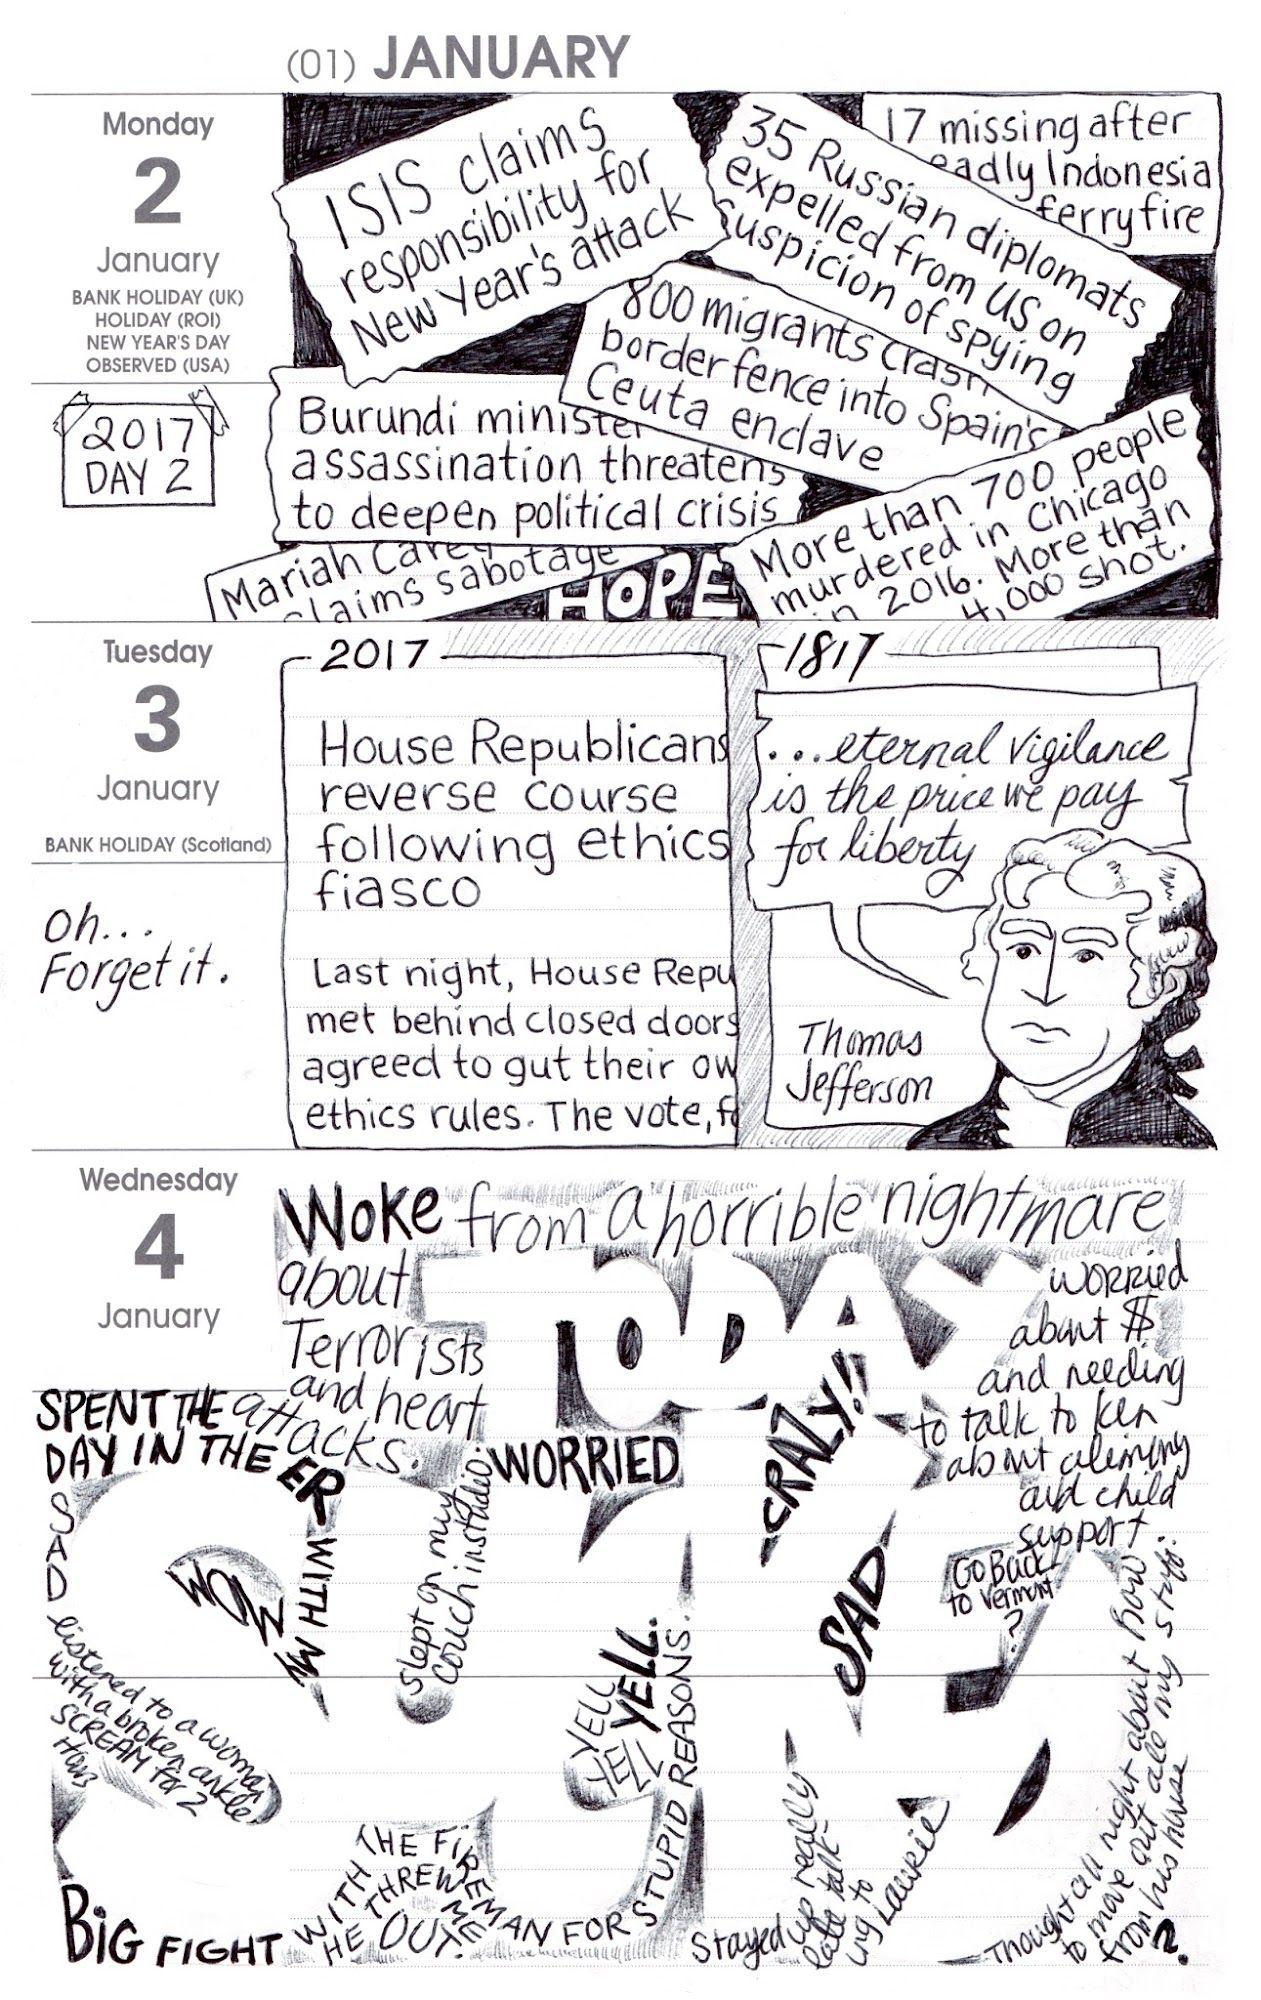 (01) JANUARY
Monday
2
January
BANK HOLIDAY (UK)
HOLIDAY (ROI)
NEW YEAR'S DAY
OBSERVED (USA)
2017
DAY 2
ISIS claims
responsibility for
New Year's attack
35 Russian diplomats
expelled from US on
suspicion of spying
17 missing after
eadly Indonesia
ferry fire
800 migrants crash
border fence into Spain's
Ceuta enclave
Burundi minister
assassination threatens
to deepen political crisis
More than 700 people
murdered in Chicago
in 2016. More than
4,000 shot.
Mariah Carey
claims sabotage
HOPE
Tuesday
3
January
BANK HOLIDAY (Scotland)
oh...
Forget it.
2017
House Republicans
reverse course
following ethics
fiasco
Last night, House Repu
met behind closed doors
agreed to gut their ow
ethics rules. The vote, fo
1817
...eternal vigilance
is the price we pay
for liberty
Thomas
Jefferson
Wednesday
4
January
Woke from a horrible nightmare
about
Terrorists
and heart
attacks.
TODAY
worried
about $
and needing
to talk to Ken
about alimony
and child
support.
SPENT THE
DAY IN THE ER
WITH MY
MOM
WORRIED
CRAZY!!
SAD
slept on my
couch in studio.
SAD
Go Back
to Vermont
?
listened to a woman
with a broken ankle
SCREAM for 2
Hours
YELL
YELL
YELL.
BIG FIGHT
WITH THE FIREMAN FOR STUPID REASONS.
HE THREW ME
OUT.
Stayed up really
late talk-
ing to
Laurie
Thought all night about how
to move out all my stuff
from his house
?